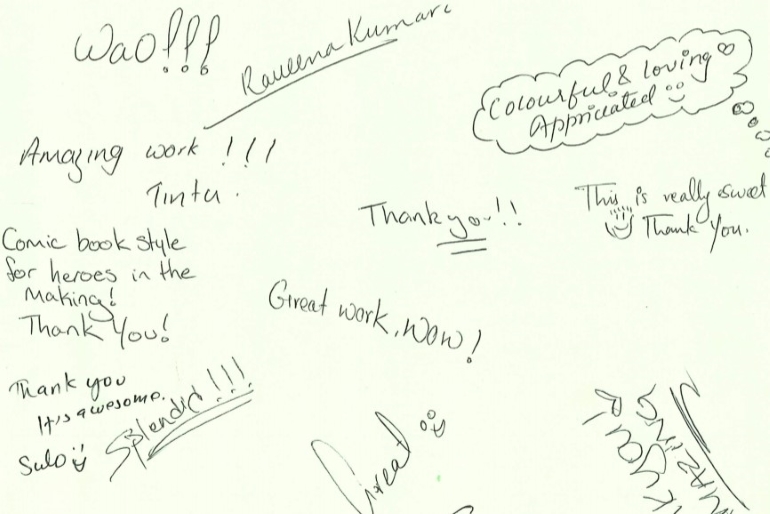 Wao!!!
Raveena Kumari
Colourful & loving
Appriciated
Amazing work !!!
Tintu.
Thank you!!
This is really sweet
Thank You.
Comic book style
for heroes in the
Making!
Thank You!
Great work, Wow!
Thank you
It is awesome.
Sulo
Splendid!!!
Great
AMAZING